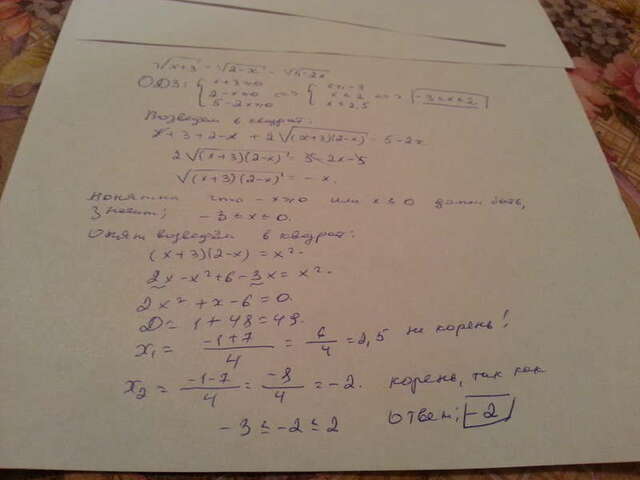 √x+3 + √2-x = √5-2x
ОДЗ: { x+3≥0 2-x≥0 5-2x≥0 <=> { x≥-3 x≤2 x≤2,5 <=> -3≤x≤2
Возведём в квадрат:
x+3+2-x+2√(x+3)(2-x) = 5-2x
2√(x+3)(2-x) = 5-2x-5
√(x+3)(2-x) = -x.
Понятно что -x≥0 или x≤0 должн быть,
Значит; -3≤x≤0.
Опят возведём в квадрат:
(x+3)(2-x)=x².
2x-x²+6-3x=x².
2x²+x-6=0.
D=1+48=49.
x₁ = -1+7/4 = 6/4 = 2,5 не корень!
x₂ = -1-7/4 = -8/4 = -2. корень, так как
-3≤-2≤2 Ответ; -2